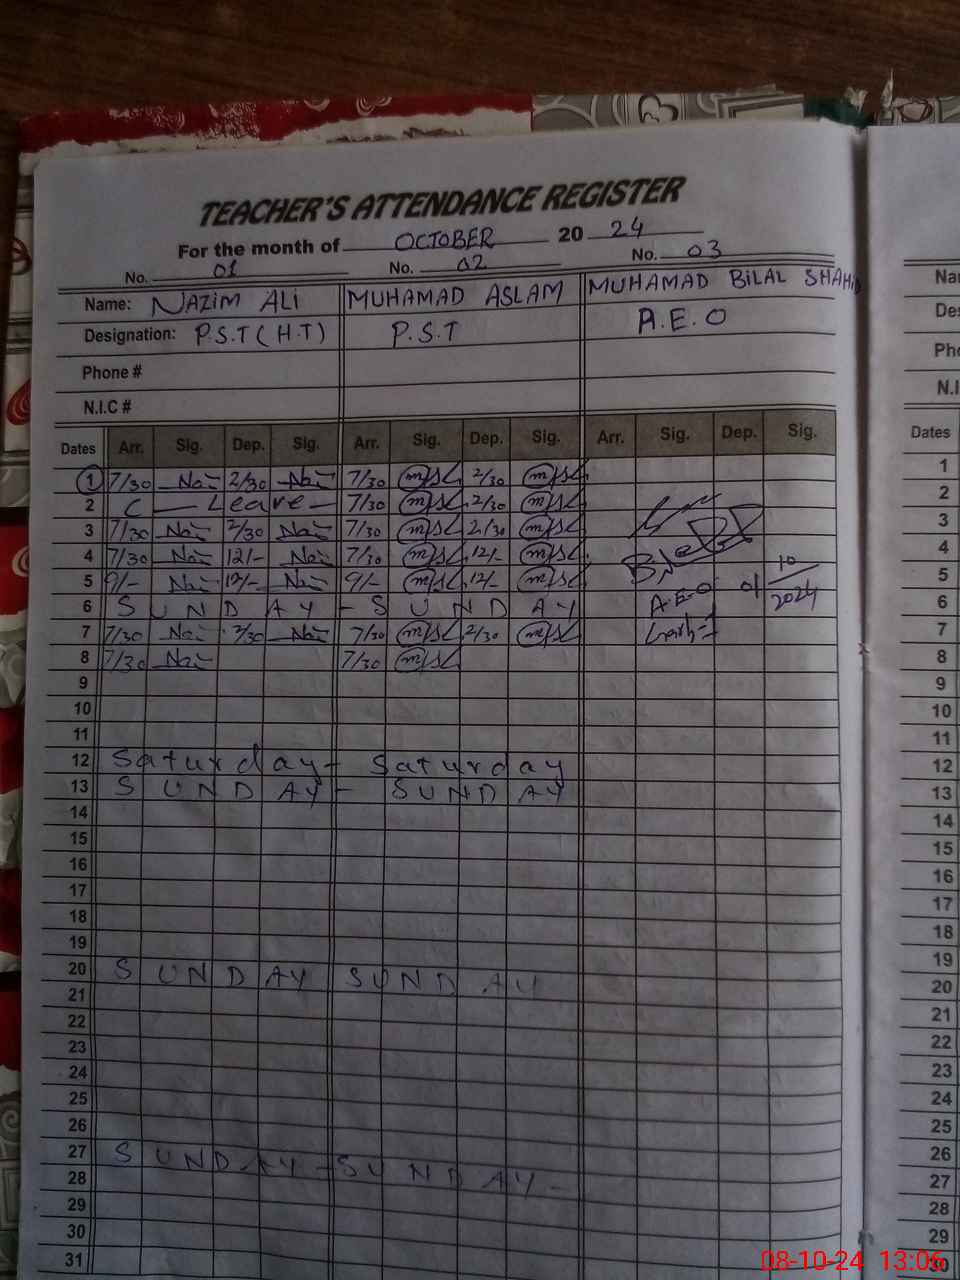 TEACHER'S ATTENDANCE REGISTER
For the month of OCTOBER 20 24
No. 01 No. 02 No. 03
Name: NAZIM ALI MUHAMAD ASLAM MUHAMAD BILAL SHAHID Na
Designation: P.S.T (H.T) P.S.T A.E.O De
Phone # Ph
N.I.C # N.I
Dates Arr. Sig. Dep. Sig. Arr. Sig. Dep. Sig. Arr. Sig. Dep. Sig. Dates
1 7/30 2/30 7/30 2/30 1
2 C Leave 7/30 2/30 2
3 7/30 2/30 7/30 2/30 3
4 7/30 12/- 7/30 12/- 10 4
5 9/- 12/- 9/- 12/- A.E.O 2024 5
6 SUNDAY - SUNDAY 6
7 7/30 2/30 7/30 2/30 7
8 7/30 7/30 8
9 9
10 10
11 11
12 Saturday - Saturday 12
13 SUNDAY - SUNDAY 13
14 14
15 15
16 16
17 17
18 18
19 19
20 SUNDAY SUNDAY 20
21 21
22 22
23 23
24 24
25 25
26 26
27 SUNDAY - SUNDAY - 27
28 28
29 29
30 30
31
08-10-24 13:06